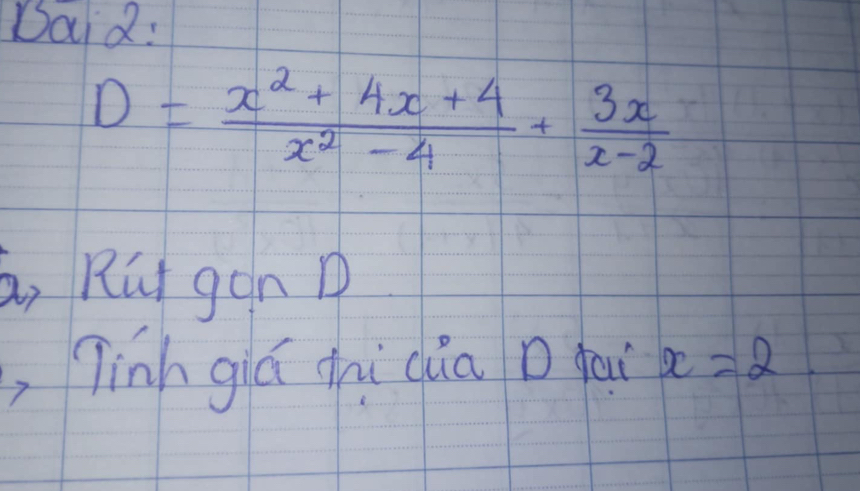 Bài 2:
D = \frac{x^2 + 4x + 4}{x^2 - 4} + \frac{3x}{x-2}
a, Rút gọn D
, Tính giá trị của D tại x = 2